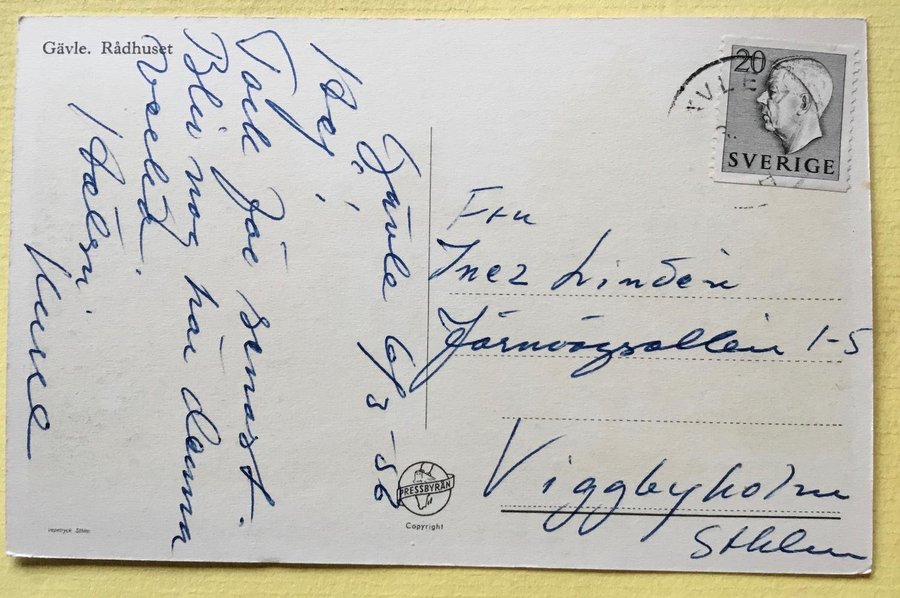 Gävle. Rådhuset
Gävle 6/3-56
Hej!
Tack för senast.
Bli nog här denna
vecka.
Hälsn
20
SVERIGE
Fru
Inez Lindén
Järnvägsallén 1-5
Viggbyholm
Sthlm
PRESSBYRÅN
Copyright